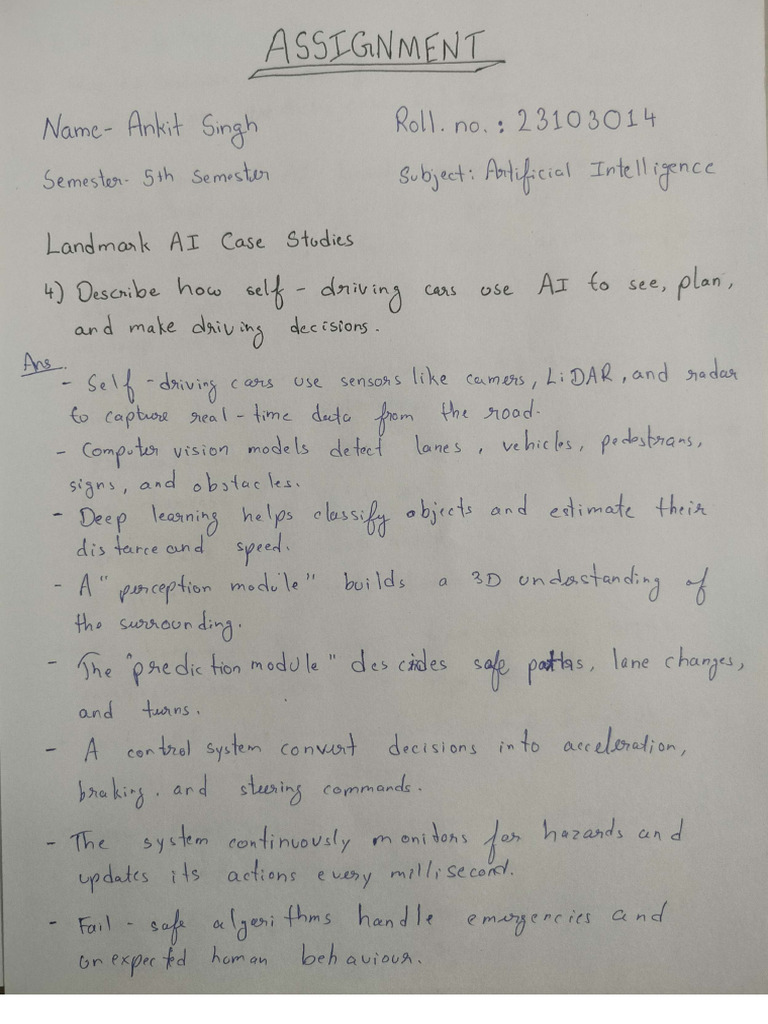 ASSIGNMENT
Name- Ankit Singh Roll. no. : 23103014
Semester- 5th Semester Subject: Artificial Intelligence
Landmark AI Case Studies
4) Describe how self - driving cars use AI to see, plan,
and make driving decisions.
Ans.
- Self - driving cars use sensors like camers, LiDAR, and radar
to capture real - time data from the road.
- Computer vision models detect lanes, vehicles, pedestrans,
signs, and obstacles.
- Deep learning helps classify objects and estimate their
distance and speed.
- A "perception module" builds a 3D understanding of
the surrounding.
- The "prediction module" decides safe paths, lane changes,
and turns.
- A control system convert decisions into acceleration,
braking. and steering commands.
- The system continuously monitors for hazards and
updates its actions every millisecond.
- Fail - safe algorithms handle emergencies and
unexpected human behaviour.